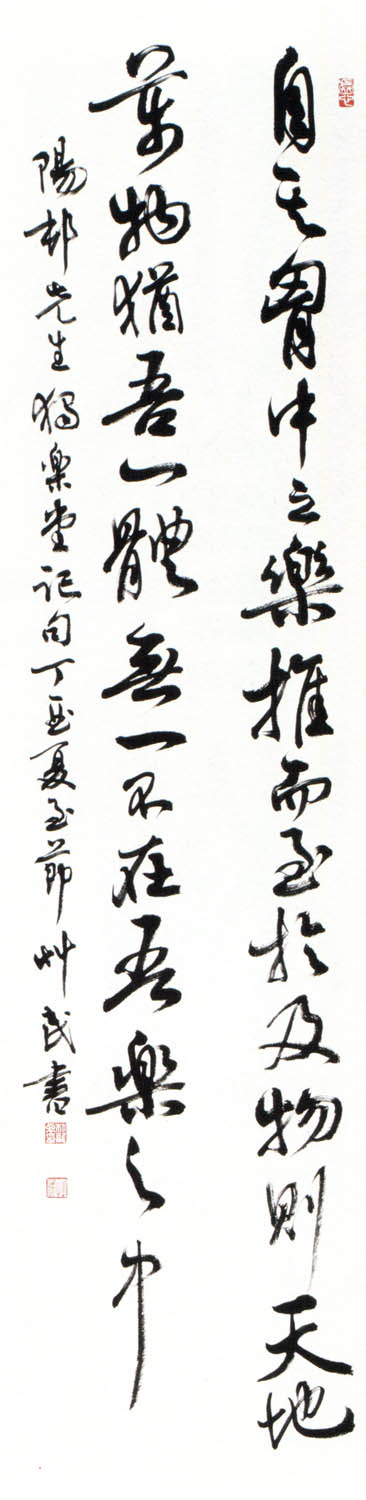 自其胷中之樂推而至於及物則天地
萬物猶吾一體無一不在吾樂之中
陽村先生獨樂堂記句丁酉夏至節艸民書